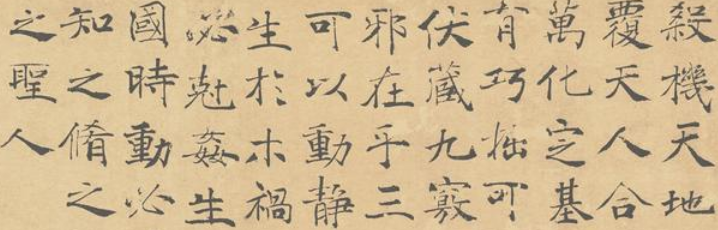 殺機天地
覆天人合
萬化定基
有巧拙可
伏藏九竅
邪在乎三
可以動静
生於木禍
必尅姦生
國時動必
知之脩之
之聖人